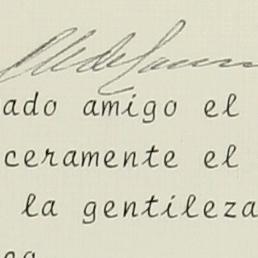 ado amigo el
ceramente el
la gentileza